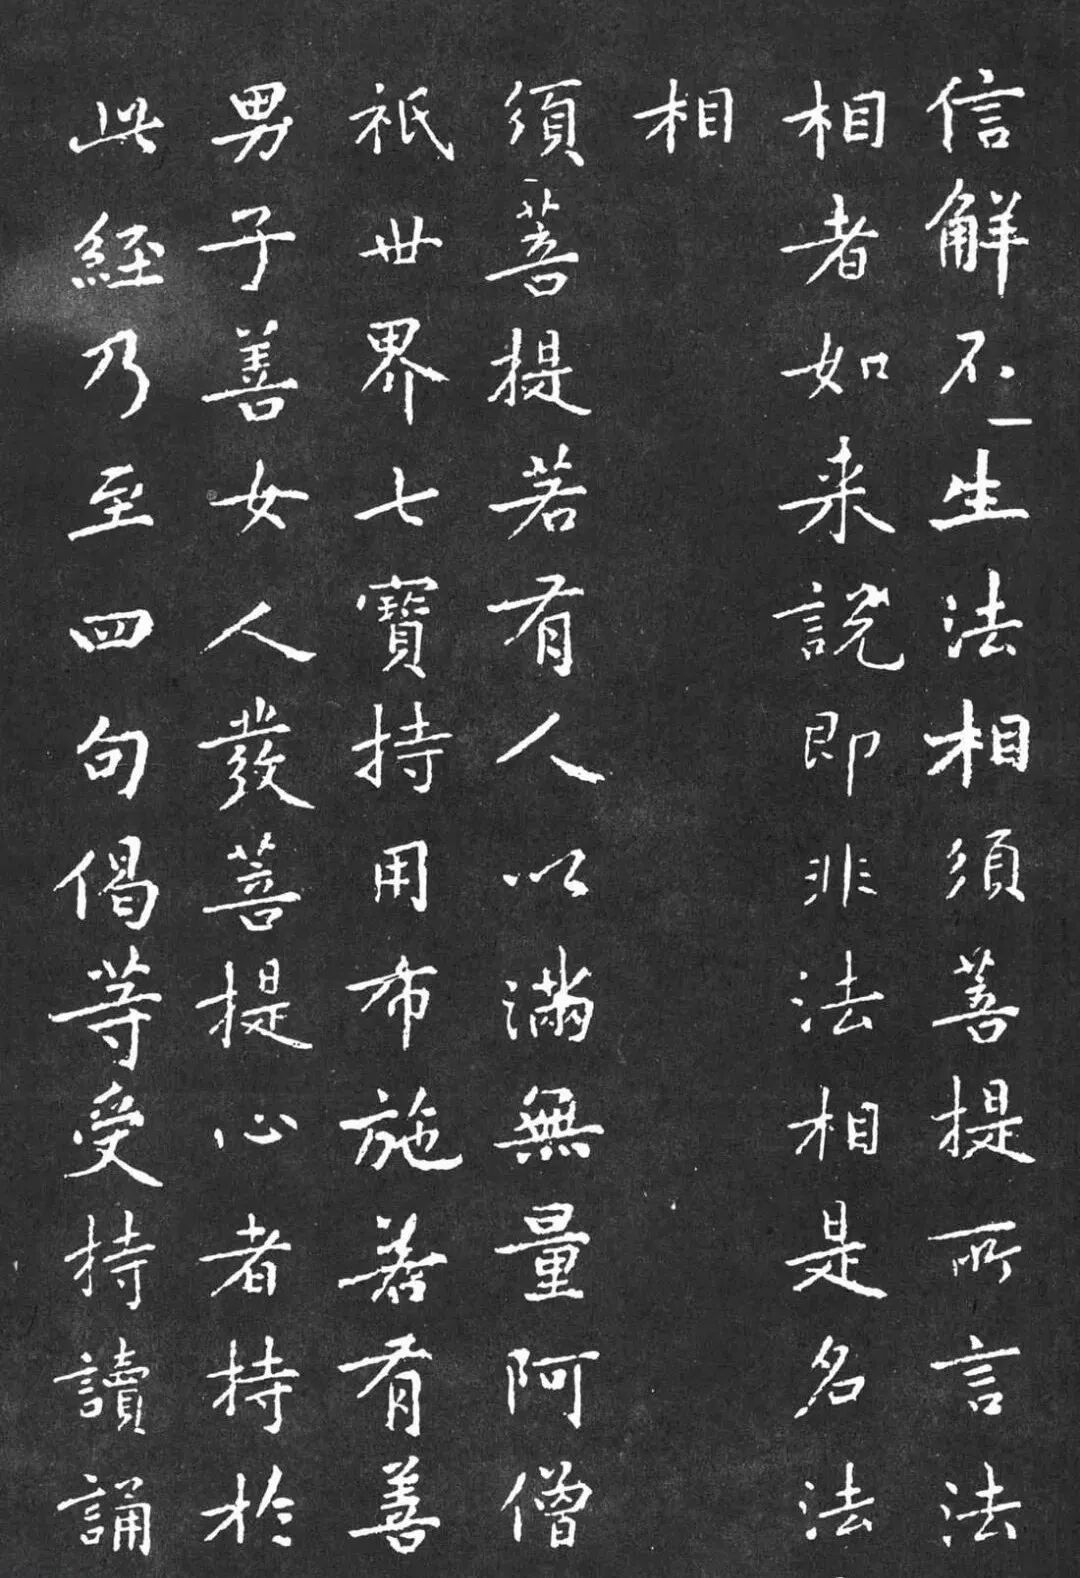 信解不生法相須菩提所言法
相者如来說即非法相是名法
相
須菩提若有人以滿無量阿僧
祇世界七寶持用布施若有善
男子善女人發菩提心者持於
此經乃至四句偈等受持讀誦